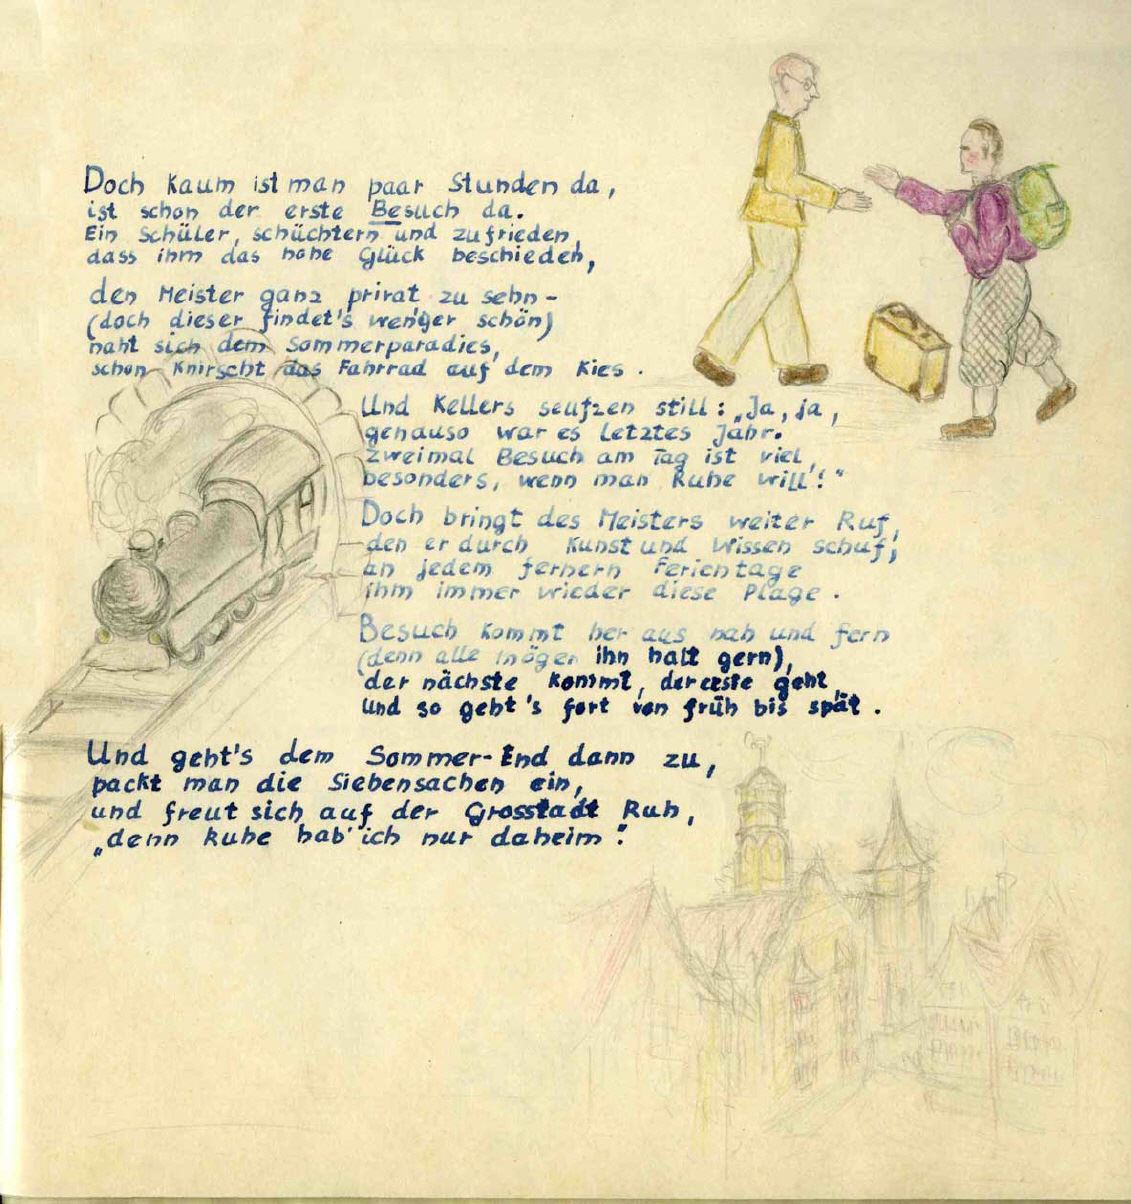 Doch kaum ist man paar Stunden da,
ist schon der erste Besuch da.
Ein Schüler, schüchtern und zufrieden,
dass ihm das hohe Glück beschieden,
den Meister ganz privat zu sehn -
(doch dieser findet's wen'ger schön)
naht sich dem Sommerparadies,
schon knirscht das Fahrrad auf dem Kies.
Und Kellers seufzen still: „Ja, ja,
genauso war es letztes Jahr.
Zweimal Besuch am Tag ist viel,
besonders, wenn man Ruhe will!"
Doch bringt des Meisters weiter Ruf,
den er durch Kunst und Wissen schuf,
an jedem fernern Ferientage
ihm immer wieder diese Plage.
Besuch kommt her aus nah und fern
(denn alle mögen ihn halt gern),
der nächste kommt, der erste geht,
und so geht's fort von früh bis spät.
Und geht's dem Sommer-End dann zu,
packt man die Siebensachen ein,
und freut sich auf der Grosstadt Ruh,
„denn Ruhe hab' ich nur daheim".